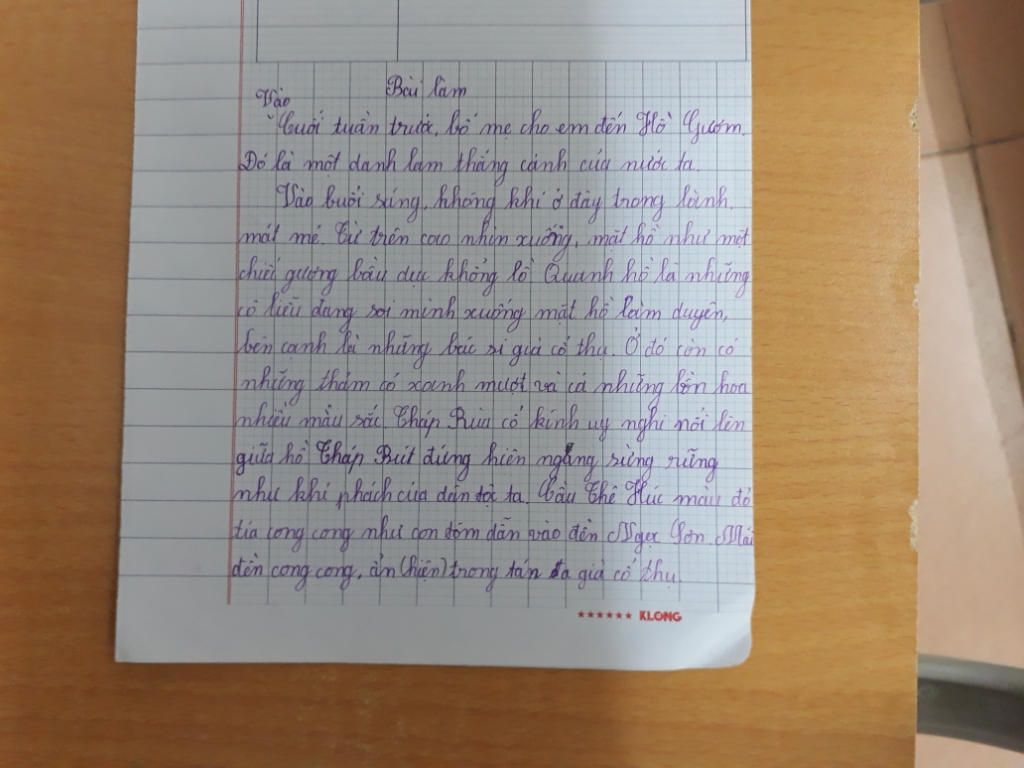 Bài làm
Vào
Cuối tuần trước, bố mẹ cho em đến Hồ Gươm.
Đó là một danh lam thắng cảnh của nước ta.
Vào buổi sáng, không khí ở đây trong lành,
mát mẻ. Từ trên cao nhìn xuống, mặt hồ như một
chiếc gương bầu dục khổng lồ. Quanh hồ là những
cô liễu đang soi mình xuống mặt hồ làm duyên,
bên cạnh là những bác si già cổ thụ. Ở đó còn có
những thảm cỏ xanh mượt và cả những bồn hoa
nhiều màu sắc. Tháp Rùa cổ kính uy nghi nổi lên
giữa hồ. Tháp Bút đứng hiên ngang sừng sững
như khí phách của dân tộc ta. Cầu Thê Húc màu đỏ
tía cong cong như con tôm dẫn vào đền Ngọc Sơn. Mái
đền cong cong, ẩn (hiện) trong tán đa già cổ thụ.
****** KLONG